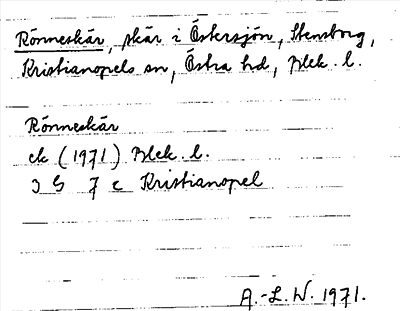 Rönneskär, skär i Östersjön, Stensborg,
Kristianopels sn, Östra hd, Blek. l.
Rönneskär
ek (1971) Blek. l.
3 G 7 c Kristianopel
A.-L. W. 1971.